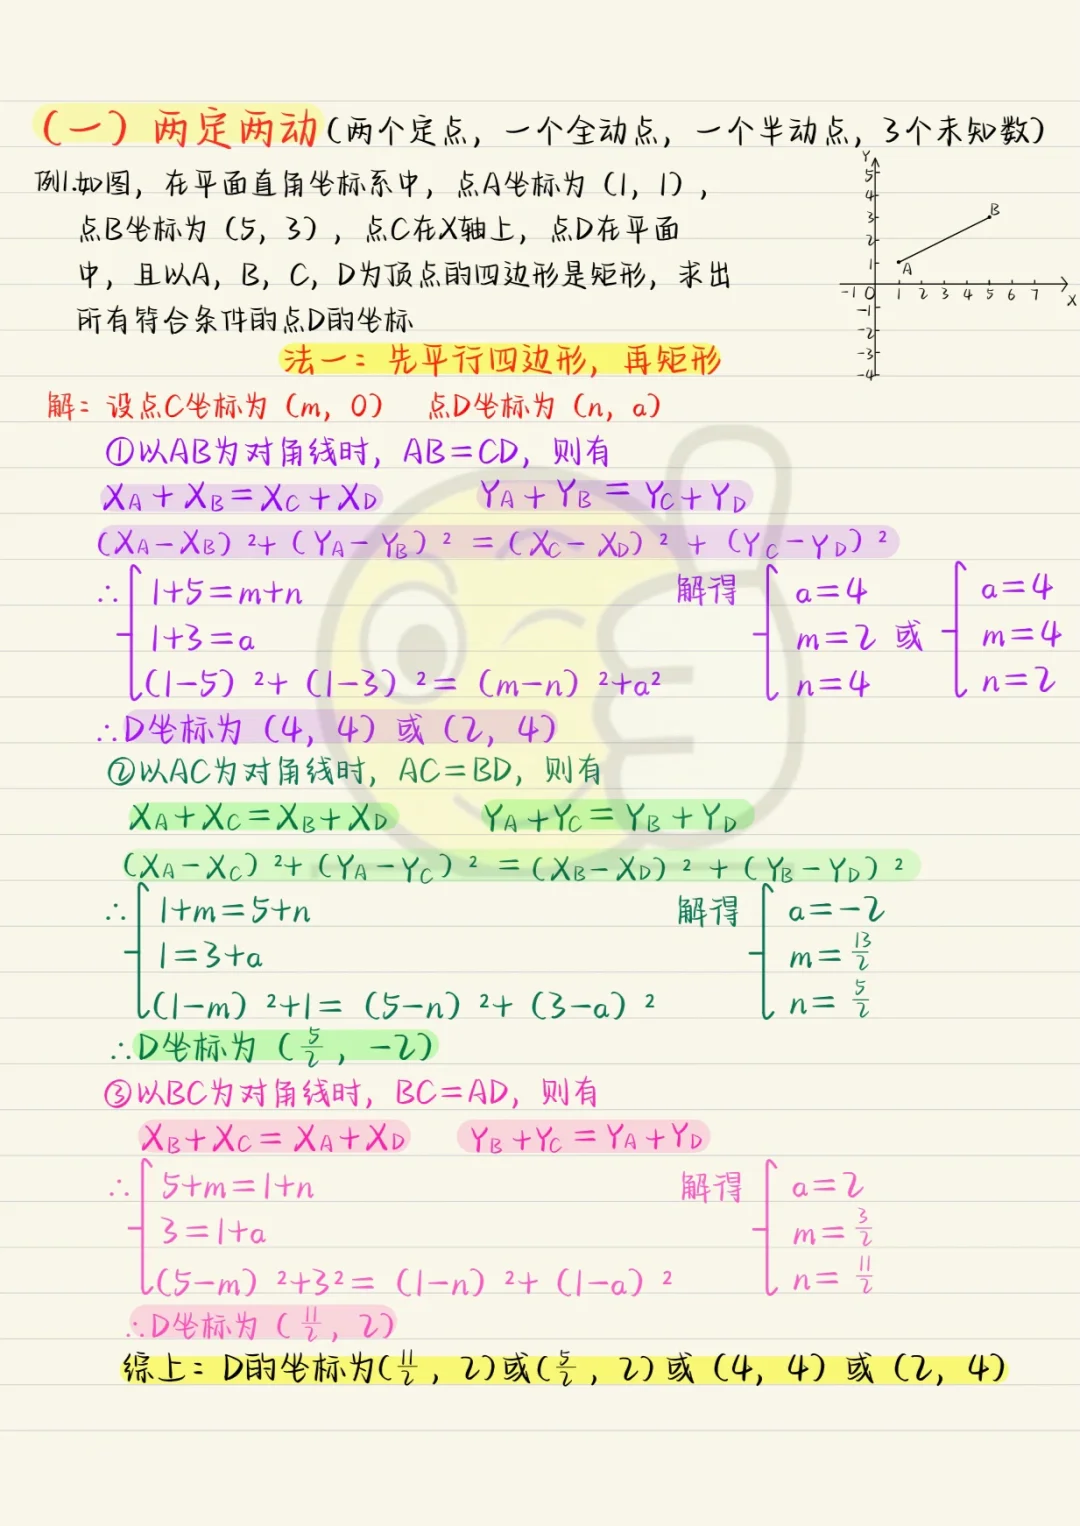 （一）两定两动（两个定点，一个全动点，一个半动点，3个未知数）
例1.如图，在平面直角坐标系中，点A坐标为（1，1），
点B坐标为（5，3），点C在X轴上，点D在平面
中，且以A，B，C，D为顶点的四边形是矩形，求出
所有符合条件的点D的坐标
Y
5
4
3
2
1
B
A
-1 0 1 2 3 4 5 6 7 X
-1
-2
-3
-4
法一：先平行四边形，再矩形
解：设点C坐标为（m，0） 点D坐标为（n，a）
①以AB为对角线时，AB=CD，则有
XA+XB=XC+XD YA+YB=YC+YD
(XA-XB)²+(YA-YB)²=(XC-XD)²+(YC-YD)²
∴ { 1+5=m+n 解得 { a=4 { a=4
1+3=a m=2 或 m=4
(1-5)²+(1-3)²=(m-n)²+a² n=4 n=2
∴D坐标为（4，4）或（2，4）
②以AC为对角线时，AC=BD，则有
XA+XC=XB+XD YA+YC=YB+YD
(XA-XC)²+(YA-YC)²=(XB-XD)²+(YB-YD)²
∴ { 1+m=5+n 解得 { a=-2
1=3+a m=13/2
(1-m)²+1=(5-n)²+(3-a)² n=5/2
∴D坐标为（5/2，-2）
③以BC为对角线时，BC=AD，则有
XB+XC=XA+XD YB+YC=YA+YD
∴ { 5+m=1+n 解得 { a=2
3=1+a m=3/2
(5-m)²+3²=(1-n)²+(1-a)² n=11/2
∴D坐标为（11/2，2）
综上：D的坐标为（11/2，2）或（5/2，2）或（4，4）或（2，4）